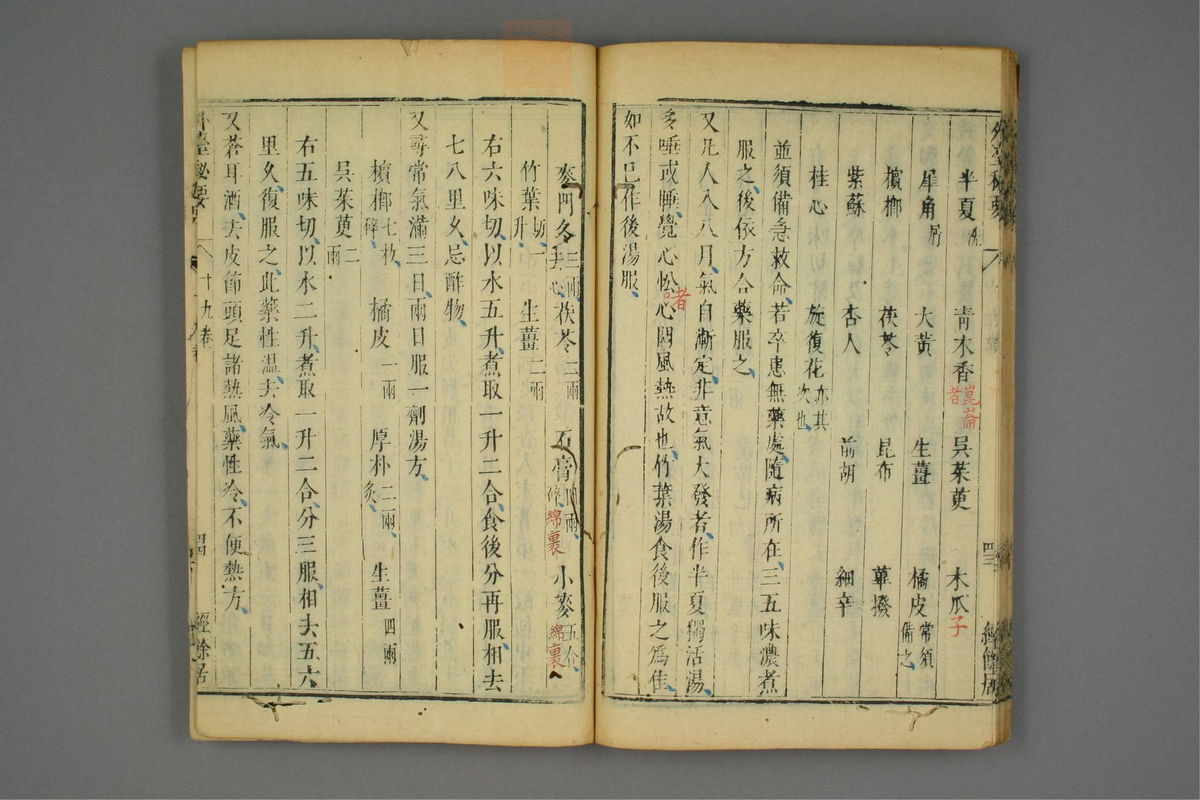 外臺秘要
半夏洗 青木香崑崙者 吳茱萸 木瓜子
犀角屑 大黃 生薑 橘皮常須備之
檳榔 茯苓 昆布 蓽撥
紫蘇 杏人 前胡 細辛
桂心 旋復花亦其次也
並須備急救命若卒患無藥處隨病所在三五味濃煮
服之後依方合藥服之
又凡人入八月氣自漸定非意氣大發者作半夏獨活湯
多唾或睡覺心忪心悶風熱故也竹葉湯食後服之為佳
者
如不已作後湯服
麥門冬三兩去心 茯苓二兩 石膏四兩碎綿裹 小麥五合綿裹
竹葉切一升 生薑二兩
右六味切以水五升煮取一升二合食後分再服相去
七八里久忌酢物
又尋常氣滿三日兩日服一劑湯方
檳榔七枚碎 橘皮一兩 厚朴二兩炙 生薑四兩
吳茱萸二兩
右五味切以水二升煮取一升二合分三服相去五六
里久復服之此藥性溫去冷氣
又蒼耳酒去皮節頭足諸熱風藥性冷不便熱方
外臺秘要 十九卷 經餘居